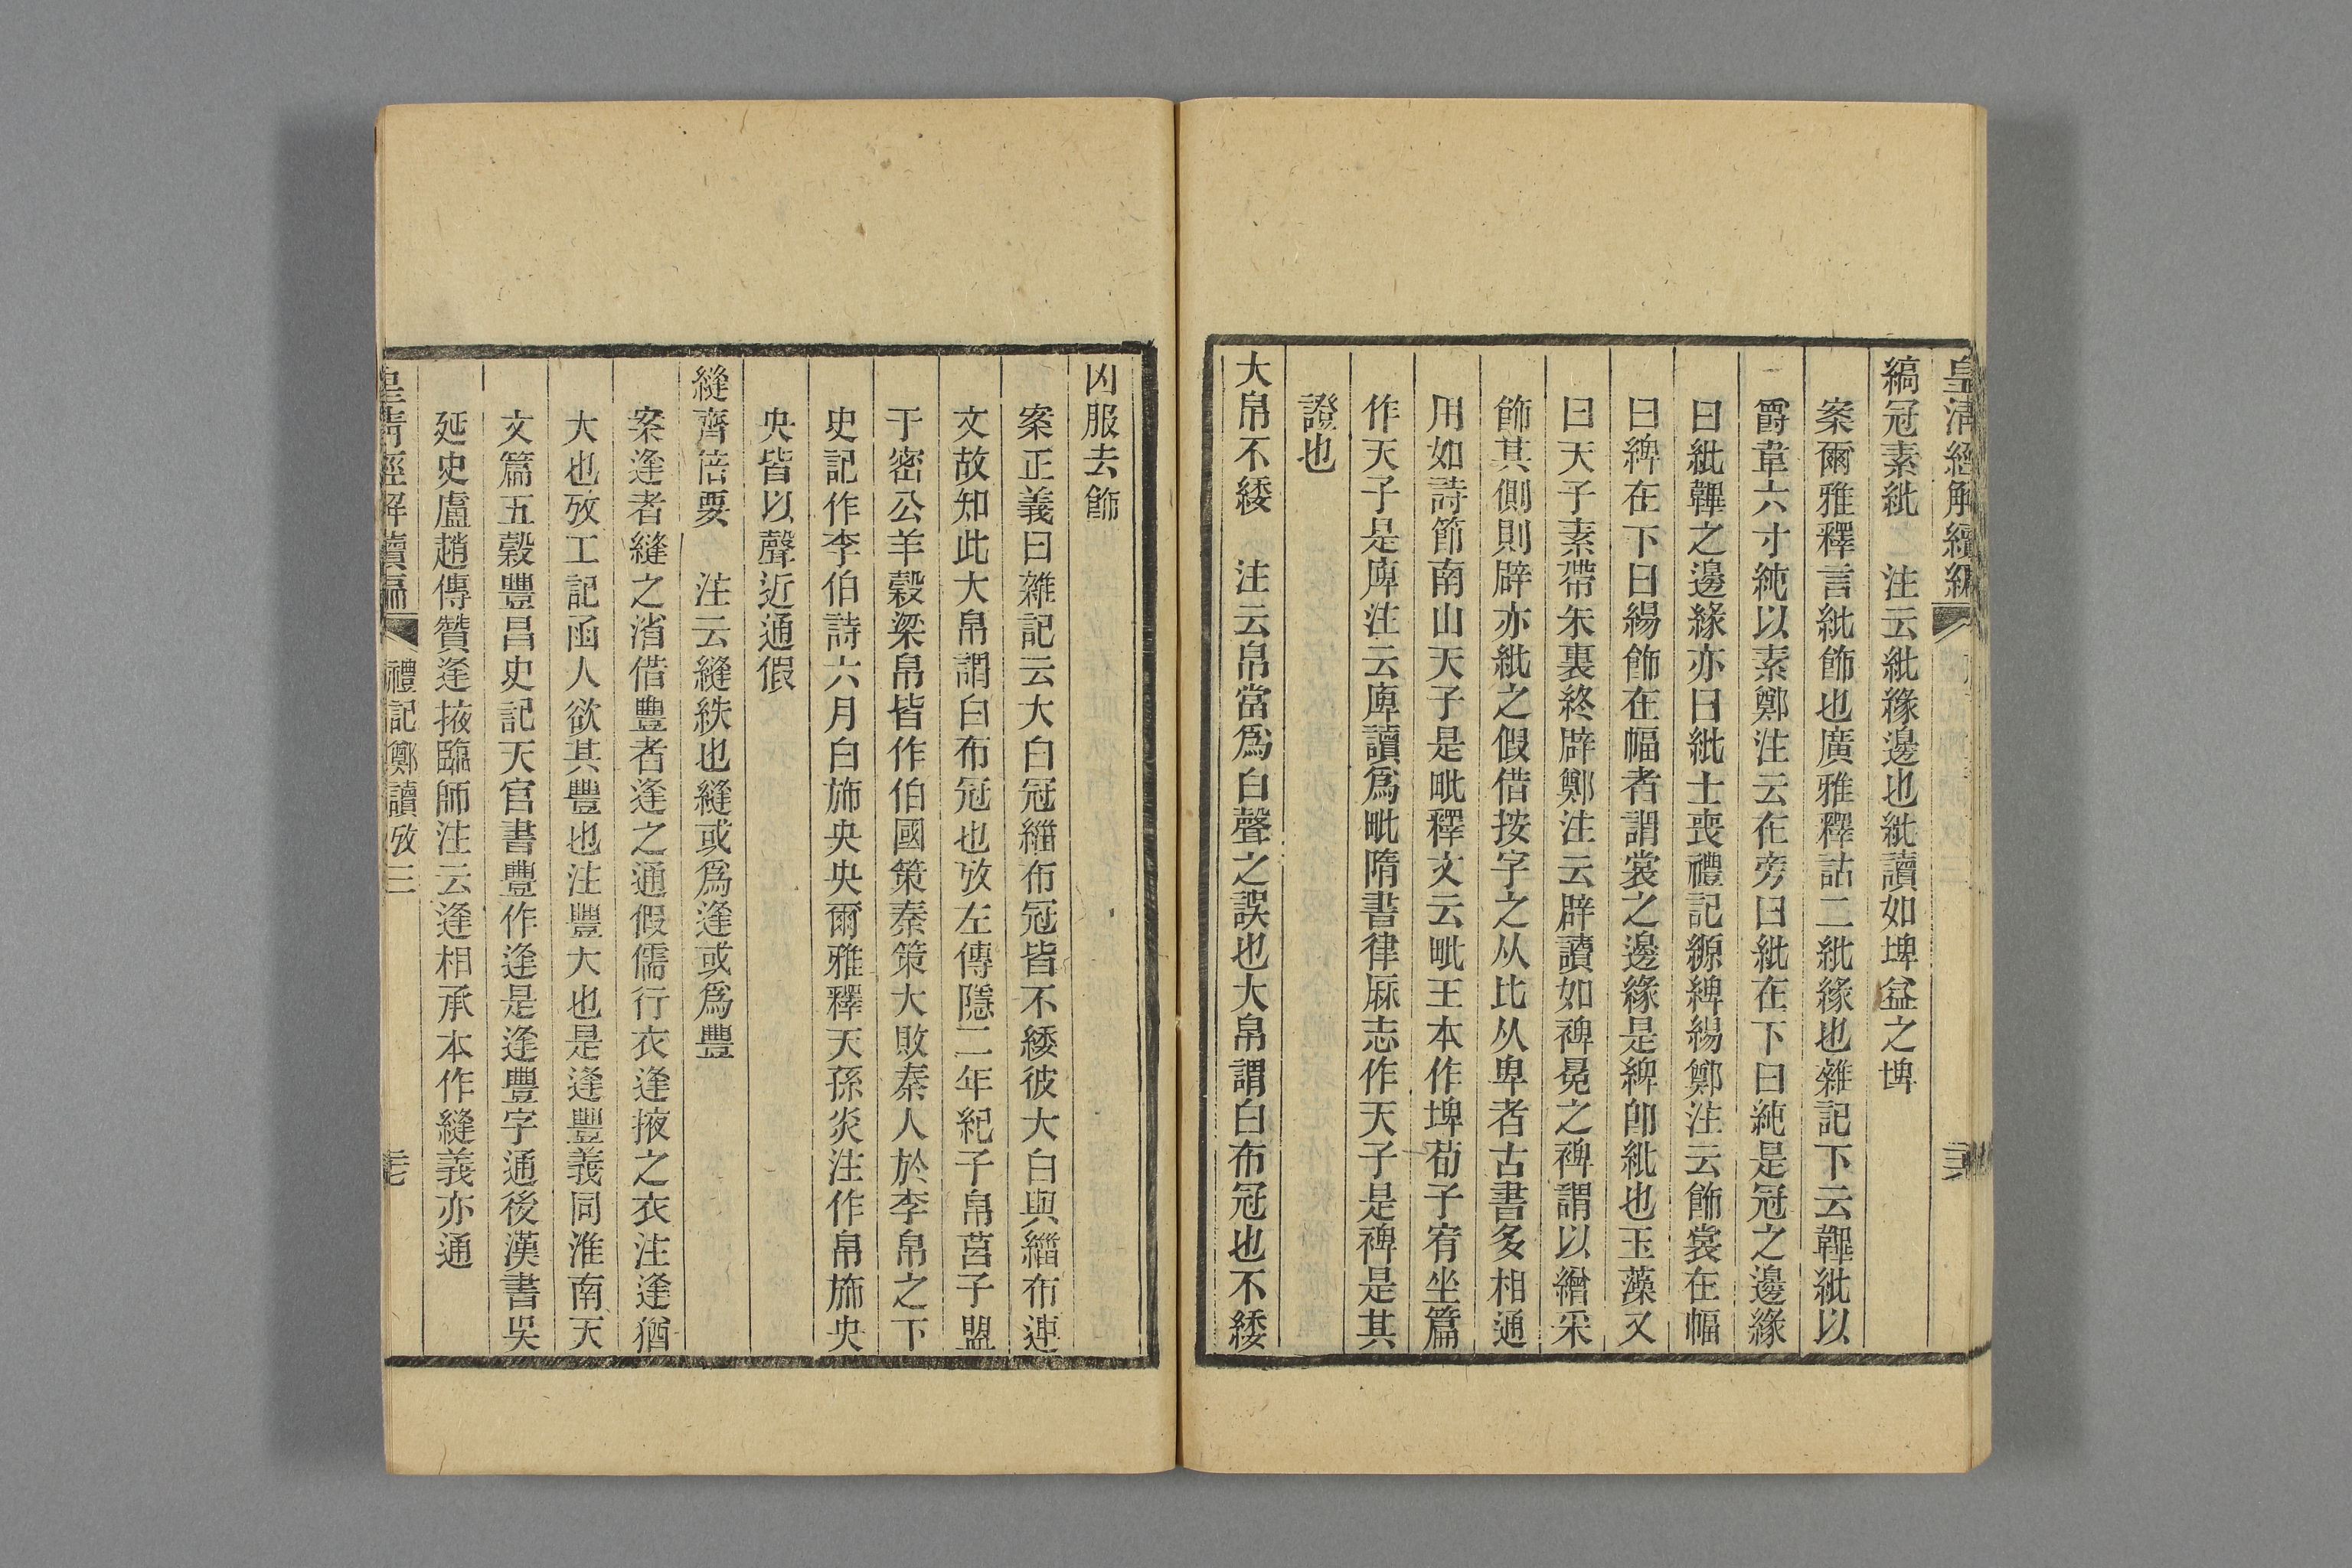 皇清經解續編
縞冠素紕　注云紕緣邊也紕讀如埤益之埤
案爾雅釋言紕飾也廣雅釋詁二紕緣也雜記下云韠紕以
爵韋六寸純以素鄭注云在旁曰紕在下曰純是冠之邊緣
曰紕韠之邊緣亦曰紕士喪禮記縓綼緆鄭注云飾裳在幅
曰綼在下曰緆飾在幅者謂裳之邊緣是綼卽紕也玉藻又
曰天子素帶朱裏終辟鄭注云辟讀如裨冕之裨謂以繒采
飾其側則辟亦紕之假借按字之从比从卑者古書多相通
用如詩節南山天子是毗釋文云毗王本作埤荀子宥坐篇
作天子是庳注云庳讀爲毗隋書律厤志作天子是裨是其
證也
大帛不緌　注云帛當爲白聲之誤也大帛謂白布冠也不緌
凶服去飾
案正義曰雜記云大白冠緇布冠皆不緌彼大白與緇布連
文故知此大帛謂白布冠也攷左傳隱二年紀子帛莒子盟
于密公羊穀梁帛皆作伯國策秦策大敗秦人於李帛之下
史記作李伯詩六月白旆央央爾雅釋天孫炎注作帛旆央
央皆以聲近通假
縫齊倍要　注云縫紩也縫或爲逢或爲豐
案逢者縫之渻借豐者逢之通假儒行衣逢掖之衣注逢猶
大也攷工記函人欲其豐也注豐大也是逢豐義同淮南天
文篇五穀豐昌史記天官書豐作逢是逢豐字通後漢書吳
延史盧趙傳贊逢掖臨師注云逢相承本作縫義亦通
皇清經解續編　禮記鄭讀攷三